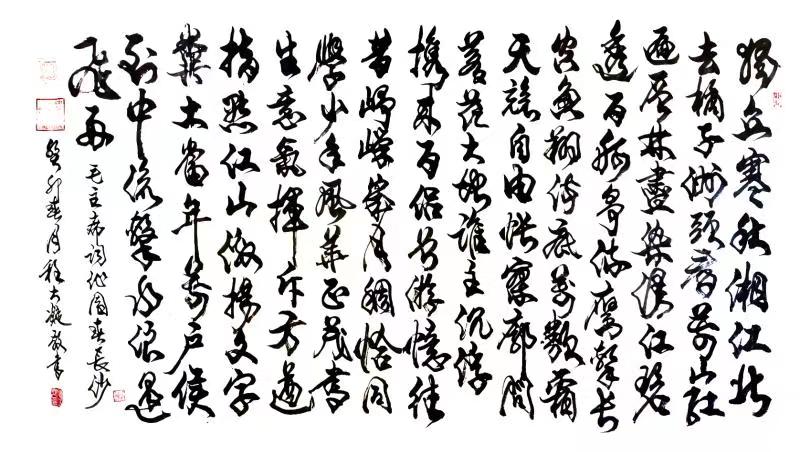 独立寒秋湘江北
去橘子洲头看萬山红
遍层林盡染漫江碧
透百舸争流鹰擊长
空鱼翔浅底萬類霜
天競自由怅寥廓问
苍茫大地谁主沉浮
携来百侣曾游憶往
昔峥嵘岁月稠恰同
學少年風華正茂書
生意氣揮斥方遒
指點江山激揚文字
糞土當年萬户侯
到中流擊水浪遏
飛舟
毛主席词沁园春长沙
癸卯春月程大凝敬書